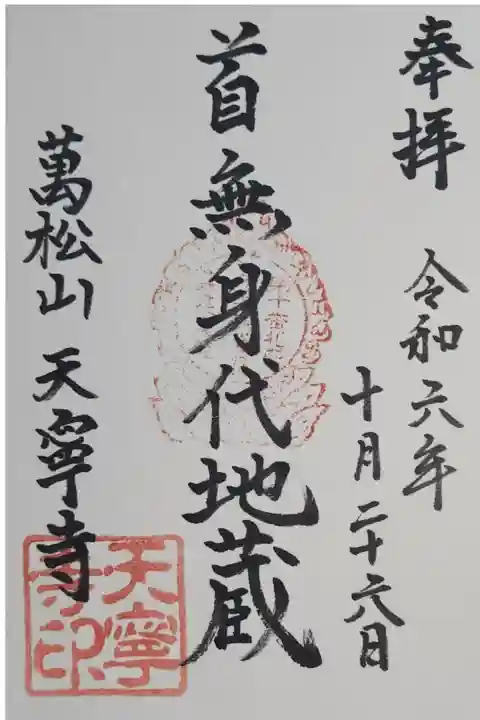 奉拝
令和六年
十月二十六日
首無身代地蔵
萬松山 天寧寺
天寧
寺印